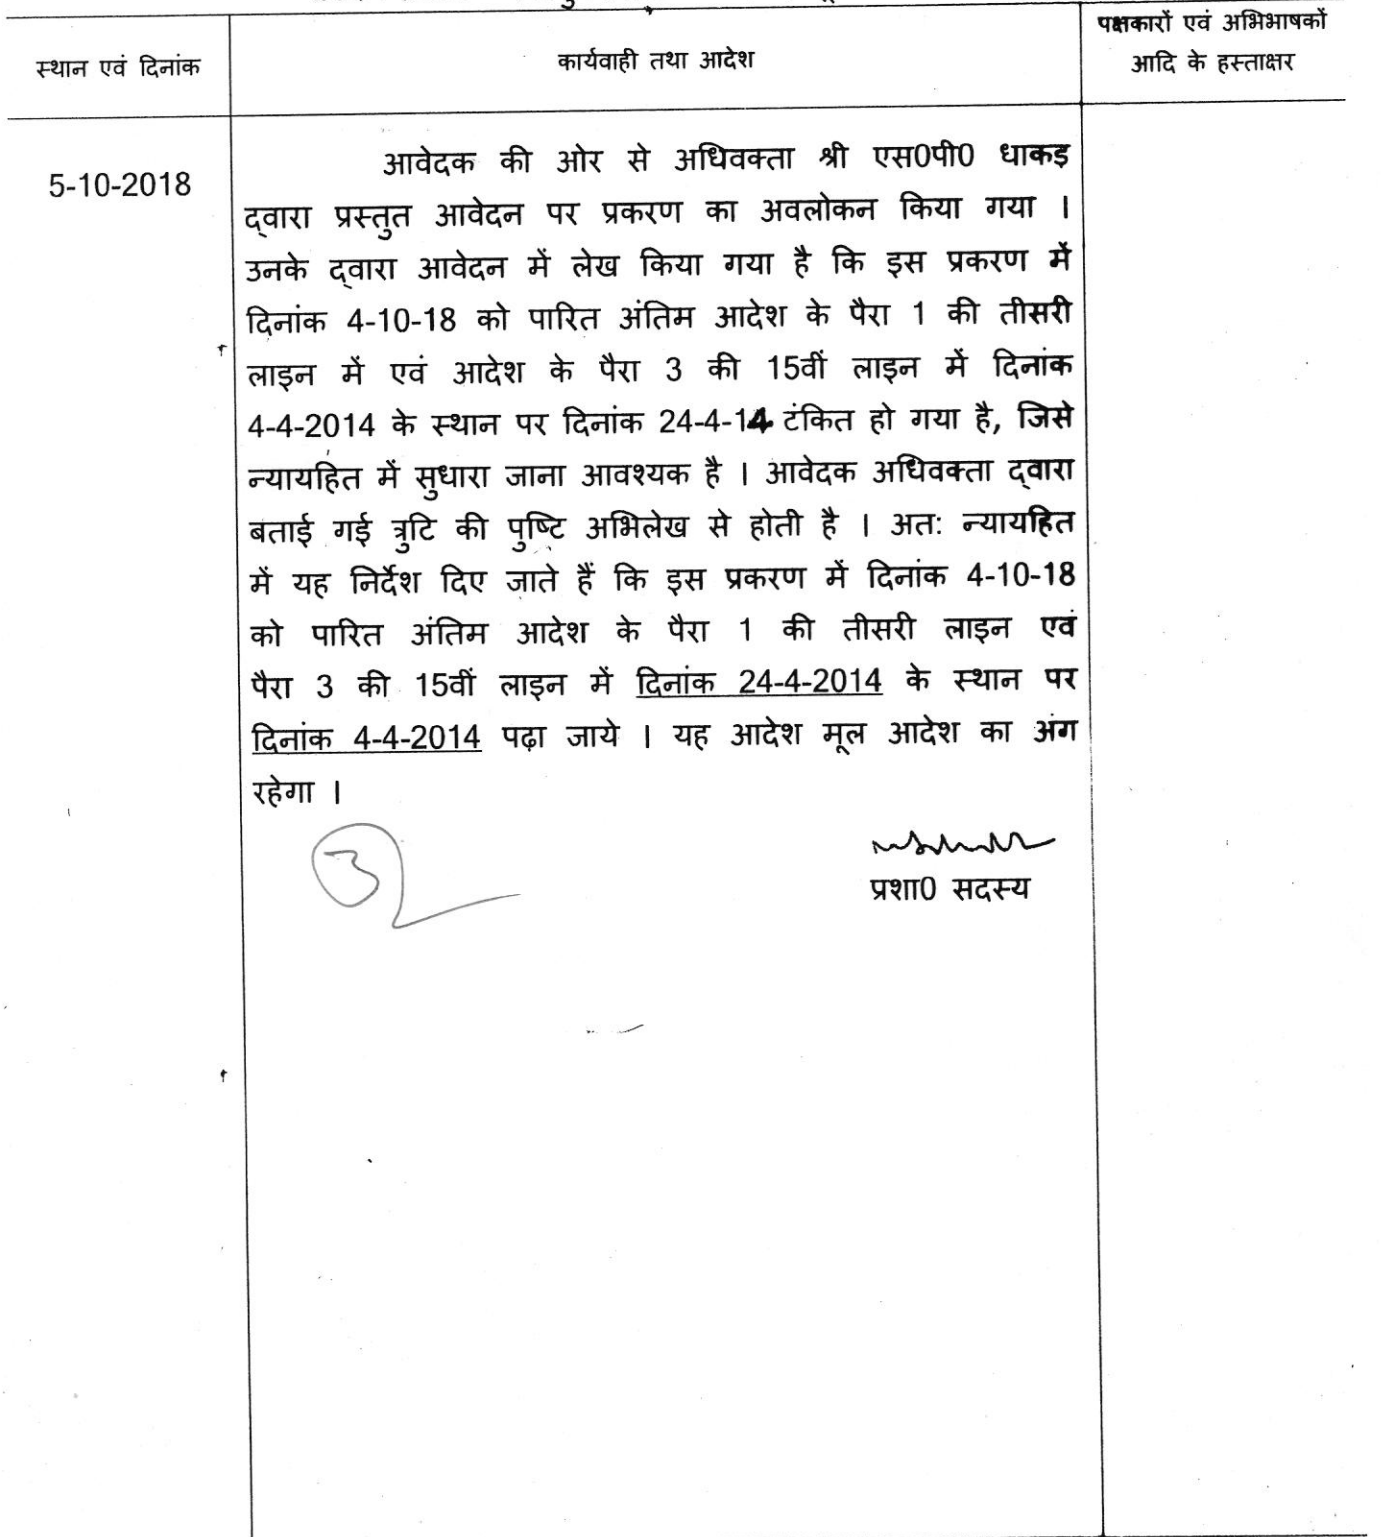 पक्षकारों एवं अभिभाषकों
स्थान एवं दिनांक
कार्यवाही तथा आदेश
आदि के हस्ताक्षर
5-10-2018
आवेदक की ओर से अधिवक्ता श्री एस0पी0 धाकड
द्वारा प्रस्तुत आवेदन पर प्रकरण का अवलोकन किया गया ।
उनके द्वारा आवेदन में लेख किया गया है कि इस प्रकरण में
दिनांक 4-10-18 को पारित अंतिम आदेश के पैरा 1 की तीसरी
लाइन में एवं आदेश के पैरा 3 की 15वीं लाइन में दिनांक
4-4-2014 के स्थान पर दिनांक 24-4-14 टंकित हो गया है, जिसे
न्यायहित में सुधारा जाना आवश्यक है । आवेदक अधिवक्ता द्वारा
बताई गई त्रुटि की पुष्टि अभिलेख से होती है । अत: न्यायहित
में यह निर्देश दिए जाते हैं कि इस प्रकरण में दिनांक 4-10-18
को पारित अंतिम आदेश के पैरा 1 की तीसरी लाइन एवं
पैरा 3 की 15वीं लाइन में दिनांक 24-4-2014 के स्थान पर
दिनांक 4-4-2014 पढ़ा जाये । यह आदेश मूल आदेश का अंग
रहेगा ।
प्रशा0 सदस्य